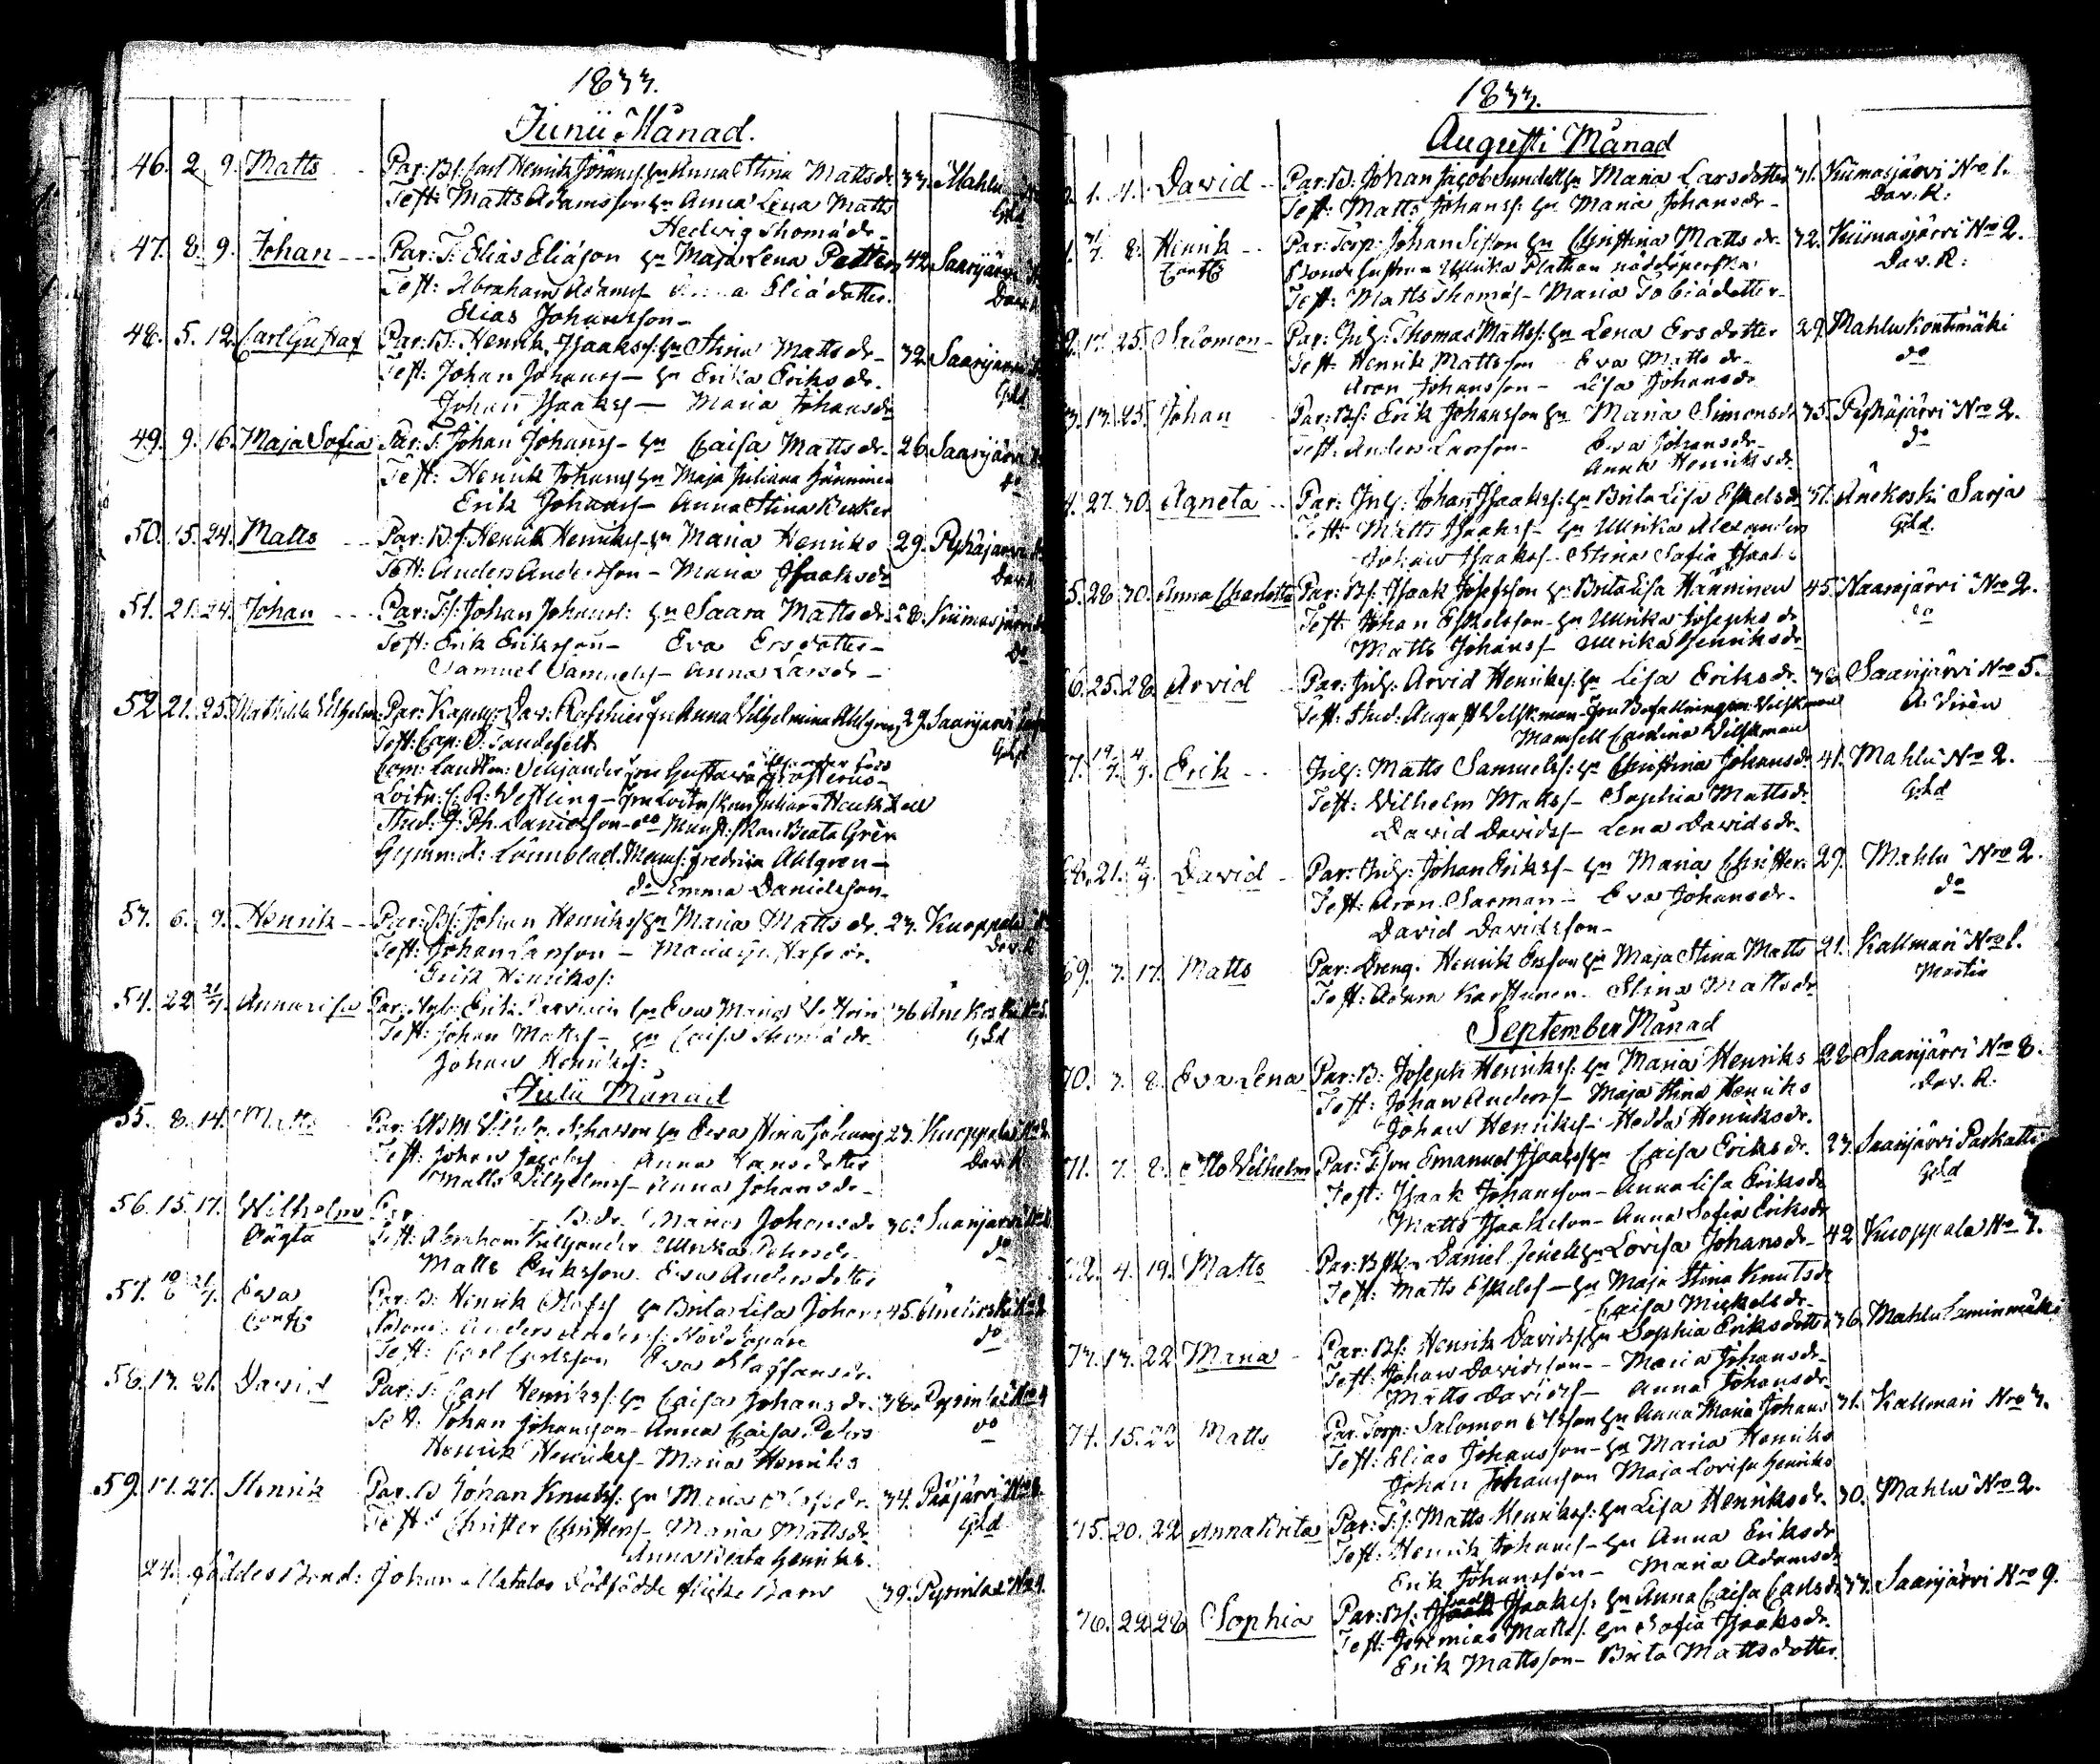 1833.
Junii Månad.
46. 2. 9. Matts Par: Bs: Carl Henrik Hu Anna Stina Matts dr 33. Mahlu
Test: Matts Adamsson Hu Anna Lena Matts Gld
Hedwig Thomædr.
47. 8. 9. Johan Par: T: Elias Eliæson Hu Maja Lena Petters 42. Saarijärvi
Test: Abraham Adams Eliædotter. Dav. R.
Elias Johansson
48. 5. 12. Carl Gustaf Par: B: Henrik Isaakss: Hu Stina Mattsdr 32. Saarijärvi
Test: Johan Johanss Hu Erika Eriksdr. Gld
Johan Isaakss Maria Johansdr
49. 9. 16. Maja Sofia Par: T: Johan Johanss Hu Caisa Mattsdr 26. Saarijärvi
Test: Henrik Johanss Hu Maja Juliana Hänninen do
Erik Johanss Anna Stina Becker
50. 15. 24. Matts Par: Bs: Henrik Henrikss Hu Maria Henriks 29. Pyhäjärvi
Test: Anders Andersson Maria Isaaksdr Dav. R.
51. 21. 24. Johan Par: Ts: Johan Johanss: Hu Saara Mattsdr 28. Kiimasjärvi
Test: Erik Eriksson Eva Ersdotter do
Samuel Samuelss Anna Larsdr
52. 21. 25. Mathilda Vilhelm: Par: Kapell: Dav: Roschier Fru Anna Vilhelmina Ahlgren 27. Saarijärvi
Test: Cap: O: Tandefelt Gld
Com: Landtm: Veljander Fru Gustava
Loitn: C: R: Westling Fru Loitn:skan Juliana
Stud: J: Ph: Danielson do Munst:skan Beata Grén
Gymn: A: Lönnblad. Mams: Fredrica Ahlgren
do Emma Danielsson
53. 6. 9. Henrik Par: Bs: Johan Henrikss Hu Maria Mattsdr. 23. Kuoppala
Test: Johan Larsson Maria Dav. R.
Erik Henrikss:
54. 22. 21/7. Anna Lisa Par: Erik Hu Eva Maria 36. Änekoski
Test: Johan Mattss Hu Caisa Thomædr. Gld
Johan Henrikss:
Julii Månad
55. 8. 14. Matts Par: Hu Eva Stina Johans 23. Kuoppala
Test: Johan Jacobss Anna Hansdotter Dav. R.
Matts Vilhelmss Anna Johansdr
56. 15. 17. Wilhelm Par Maria Johansdr 30. Saarijärvi
Oägta Test: Abraham Ulrika Petersdr do
Matts Eriksson Eva Andersdotter
57. 10/6 21/7. Eva Par: B: Henrik Olofss Hu Brita Lisa Johans 45. Änekoski
Conf: Anders Anderss: Nöddöpare do
Test: Carl Carlsson Eva Staffansdr.
58. 13. 21. David Par: T: Carl Henrikss: Hu Caisa Johansdr. 38. Pyrinlax No 4
Test: Johan Johansson Anna Caisa Peters do
Henrik Henrikss Maria Henriks
59. 17. 27. Henrik Par: B Johan Knutss: Hu Maria 34. Pääjärvi
Test: Christer Christerss Maria Mattsdr Gld
Anna Beata Henriks.
24. föddes Bond: Johan Matalas dödfödde flicke Barn 39. Pyrinlax No 4.
1833.
Augusti Månad
1. 4. David Par: B: Johan Jacob Sundell Hu Maria Larsdotter 31. Kiimasjärvi Nro 1.
Test: Matts Johanss: Hu Maria Johansdr Dav. R:
31/7 8. Henrik Par: Torp: Johan Hu Christina Mattsdr. 32. Kiimasjärvi Nro 2.
Conf: Bonde hustrun Ulrika Plathan nöddöperska Dav. R:
Test: Matts Thomæs Maria Tobiædotter
17. 25. Salomon Par: Inh: Thomas Mattss: Hu Lena Ersdotter 29. Mahlu Kontimäki
Test: Henrik Mattsson Eva Mattsdr do
Aron Johansson Lisa Johansdr
17. 25. Johan Par: Bs: Erik Johansson Hu Maria Simonsdr 35. Pyhäjärvi Nro 2.
Test: Anders Larsson Eva Johansdr do
Anna Henriksdr
27. 30. Agneta Par: Inh: Johan Isaakss: Hu Brita Lisa Eskelsdr 31. Änekoski Sarja
Test: Matts Isaakss Hu Ulrika Alexanders Gld.
Johan Isaakss Stina Sofia
28. 30. Anna Charlotta Par: Bs: Isaak Josefsson Hu Brita Lisa Hänninen 45. Naarajärvi Nro 2.
Test: Johan Eskelsson Hu Ulrika Josephsdr do
Matts Johanss Ulrika Henriksdr
25. 28. Arvid Par: Inh: Arvid Henrikss: Hu Lisa Eriksdr. 38. Saarijärvi Nro 5.
Test: Stud: August Wilskman Fru Befallningsm: Wilskman A: Sirén
Mamsell Carolina Wilskman
19/7. 4/9. Erik Inh: Matts Samuelss: Hu Christina Johansdr 41. Mahlu Nro 2.
Test: Vilhelm Mattss Sophia Mattsdr Gld
David Davidss Lena Davidsdr.
21. 4/9. David Par: Inh: Johan Erikss Hu Maria Christers 29. Mahlu Nro 2.
Test: Aron Sarman Eva Johansdr. do
David Davidsson
69. 7. 17. Matts Par: Dreng. Henrik Ersson Hu Maja Stina Matts 21. Kalmari Nro 1.
Test: Adam Karttunen Stina Mattsdr Martin
September Månad
70. 7. 8. Eva Lena Par: B: Joseph Henrikss: Hu Maria Henriks 28. Saarijärvi Nro 8.
Test: Johan Anderss Maja Stina Henriks Dav. R:
Johan Henrikss Hedda Henriksdr.
71. 7. 8. Otto Vilhelm Par: Emanuel Isaakss Hu Caisa Eriksdr. 23. Saarijärvi Parkatti
Test: Isaak Johansson Anna Lisa Eriksdr Gld
Matts Isaaksson Anna Sofia Eriksdr
72. 4. 19. Matts Par: Daniel Hu Lovisa Johansdr 42. Kuoppala No 7.
Test: Matts Eskelss Hu Maja Stina Knutsdr
Caisa Mickelsdr
73. 17. 22. Maria Par: Bs: Henrik Davidss Hu Sophia Eriksdotter 36. Mahlu Lamminmäki
Test: Johan Davidsson Maria Johansdr
Matts Davidss Anna Johansdr
74. 15. 22. Matts Par: Torp: Salomon Hu Anna Maria Johans 31. Kalmari Nro 3.
Test: Elias Johansson Hu Maria Henriks
Johan Johansson Maja Lovisa Henriks
75. 20. 22. Anna Brita Par: Ts: Matts Henrikss: Hu Lisa Henriksdr. 30. Mahlu Nro 2.
Test: Henrik Johanss Hu Anna Eriksdr
Erik Johansson Maria Adamsdr
76. 22. 28. Sophia Par: Bs: Isaakss: Hu Anna Caisa Carlsdr 33. Saarijärvi Nro 9.
Test: Jeremias Mattss: Hu Sofia Isaaksdr.
Erik Mattsson Brita Mattsdotter